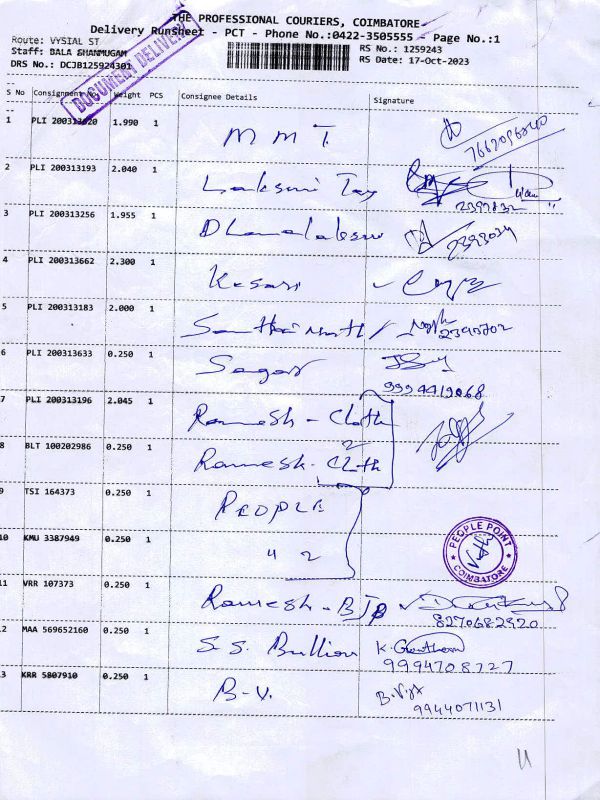 THE PROFESSIONAL COURIERS, COIMBATORE
Delivery Runsheet - PCT - Phone No.:0422-3505555 - Page No.:1
Route: VYSIAL ST
RS No.: 1259243
Staff: BALA SHANMUGAM
RS Date: 17-Oct-2023
DRS No.: DCJB125924301
DOCUMENT DELIVERY
S No Consignment No Weight PCS Consignee Details Signature
1 PLI 200313620 1.990 1 M M T.
2 PLI 200313193 2.040 1 Laksmi Tex
3 PLI 200313256 1.955 1 Dhanalaksmi
4 PLI 200313662 2.300 1 Kesari
5 PLI 200313183 2.000 1
6 PLI 200313633 0.250 1 Sagar
9994419068
7 PLI 200313196 2.045 1 Ramesh - Cloth
2
8 BLT 100202986 0.250 1 Ramesh - Cloth
9 TSI 164373 0.250 1 PEOPLE
PEOPLE POINT
COIMBATORE
10 KMU 3387949 0.250 1 " 2
11 VRR 107373 0.250 1 Ramesh - BJB
8270682920
12 MAA 569652160 0.250 1 S. S. Bullion K. Gowtham
9994708727
13 KRR 5807910 0.250 1 B-V.
9944071131